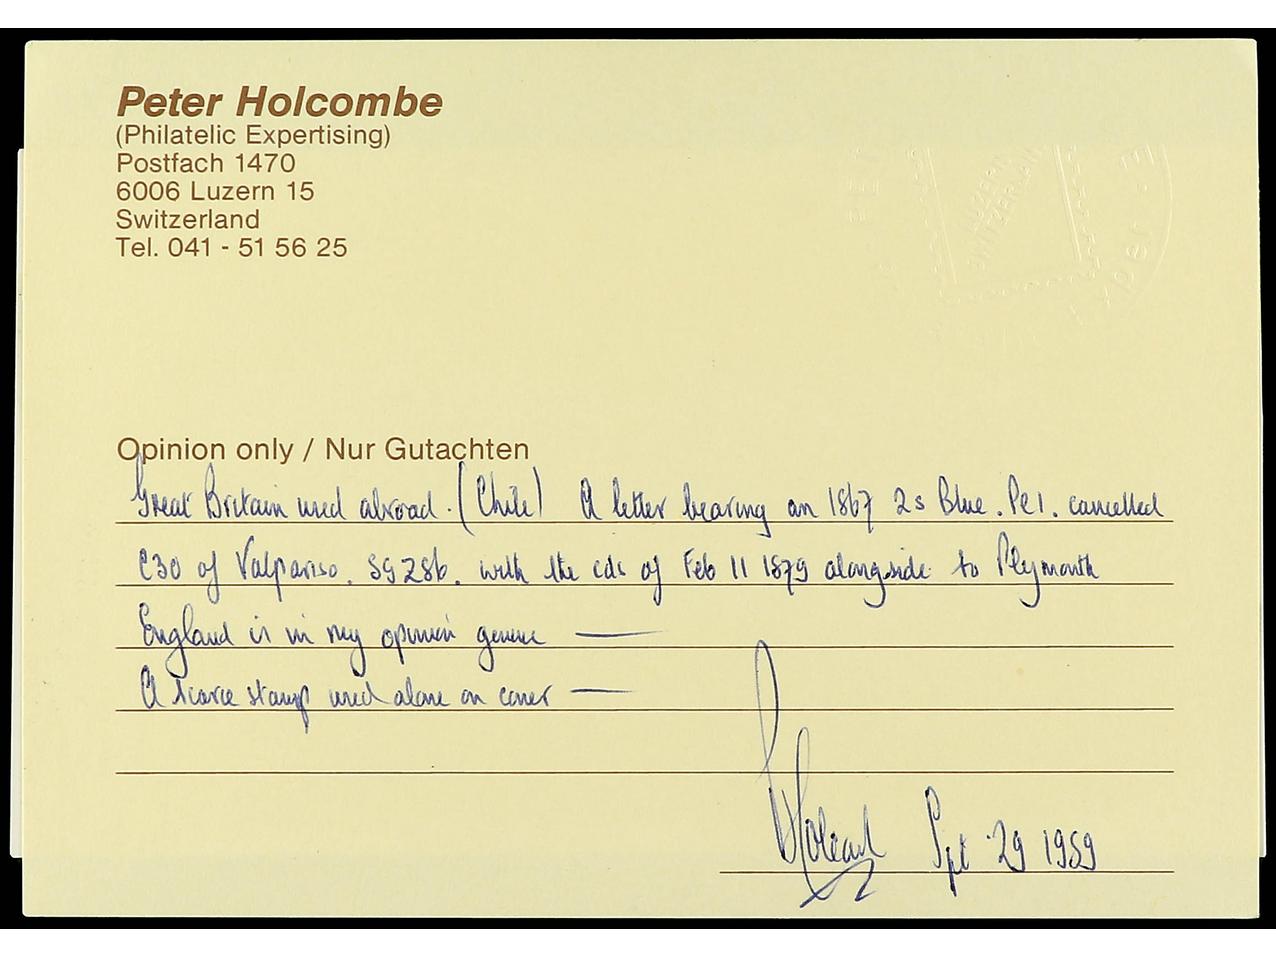 Peter Holcombe
(Philatelic Expertising)
Postfach 1470
6006 Luzern 15
Switzerland
Tel. 041 - 51 56 25
LUZERN
SWITZERLAN
Opinion only / Nur Gutachten
Great Britain used abroad. (Chile) A letter bearing an 1867 2s Blue. Pl 1. cancelled
C30 of Valpariso. SG Z86. with the cds of Feb 11 1879 alongside to Plymouth
England is in my opinion genuine —
A scarce stamp used alone on cover —
Sept 29 1989